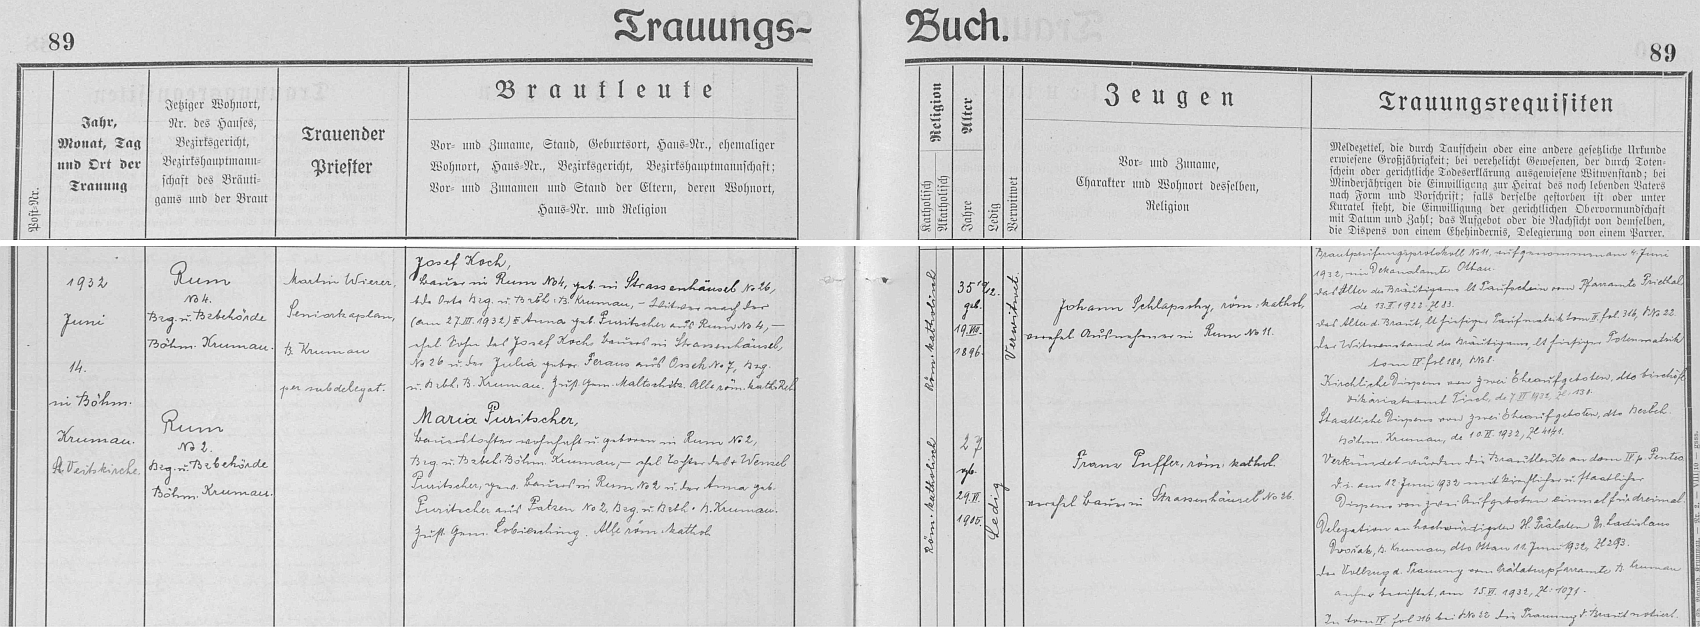 89
Trauungs-
Buch.
89
Post-Nr.
Jahr,
Monat, Tag
und Ort der
Trauung
Jetziger Wohnort,
Nr. des Hauses,
Bezirksgericht,
Bezirkshauptmann-
schaft des Bräuti-
gams und der Braut
Trauender
Priester
Brautleute
Vor- und Zuname, Stand, Geburtsort, Haus-Nr., ehemaliger
Wohnort, Haus-Nr., Bezirksgericht, Bezirkshauptmannschaft;
Vor- und Zunamen und Stand der Eltern, deren Wohnort,
Haus-Nr. und Religion
Religion
Katholisch
Akatholisch
Alter
Jahre
Ledig
Verwitwet
Zeugen
Vor- und Zuname,
Charakter und Wohnort desselben,
Religion
Trauungsrequisiten
Meldezettel, die durch Taufschein oder eine andere gesetzliche Urkunde
erwiesene Großjährigkeit; bei verehelicht Gewesenen, der durch Toten-
schein oder gerichtliche Todeserklärung ausgewiesene Witwenstand; bei
Minderjährigen die Einwilligung zur Heirat des noch lebenden Vaters
nach Form und Vorschrift; falls derselbe gestorben ist oder unter
Kuratel steht, die Einwilligung der gerichtlichen Obervormundschaft
mit Datum und Zahl; das Aufgebot oder die Nachsicht von demselben,
die Dispens von einem Ehehindernis, Delegierung von einem Parrer.
1932
Juni
14.
in Böhm.
Krumau.
St. Veitskirche.
Rum
No 4.
Bzg. u. Bzbehörde
Böhm. Krumau.
Rum
No 2.
Bzg. u. Bzbehörde
Böhm. Krumau.
Martin Wierer,
Seniorkaplan,
B. Krumau
per subdelegat.
Josef Koch,
Bauer in Rum No 4, geb. in Strassenhäusel No 26,
Bzg. u. Bzbl. B. Krumau, – Witwer nach der
(am 27. III. 1932) Anna geb. Puritscher aus Rum No 4, –
ehel. Sohn des Josef Koch Bauers in Strassenhäusel
No 26 u. der Julia gebor. Feraus aus Ossek No 7, Bzg.
u. Bzbl. B. Krumau. Zust. Gem. Maltschitz. Alle röm. kath. Rel.
Maria Puritscher,
Bauerstochter wohnhaft u. geboren in Rum No 2,
Bzg. u. Bzbeh. Böhm. Krumau, – ehel. Tochter des + Wenzel
Puritscher, gew. Bauers in Rum No 2 u. der Anna geb.
Puritscher aus Patzen No 2, Bzg. u. Bzbl. B. Krumau.
Zust. Gem. Lobiesching. Alle röm. kathol.
Röm. katholisch
35 10/12.
geb.
19. VIII.
1896.
Verwitwet.
Röm. katholisch
27
geb.
29. VI.
1905.
Ledig
Johann Schlapschy, röm. kathol.,
verehel. Ausnehmer in Rum No 11.
Franz Puffer, röm. kathol.
verehel. Bauer in Strassenhäusel No 26
Brautprüfungsprotokoll No 11, aufgenommen am 4. Juni
1932, im Dekanalamte Ottau.
Das Alter des Bräutigams lt. Taufschein vom Pfarramte Priethal
Das Alter d. Braut, lt. hiesiger Taufmatrik tom. II fol. 316, No 22
Der Witwenstand des Bräutigams, lt. hiesiger Totenmatrik
tom. IV fol. 180, No 8.
Kirchliche Dispens von zwei Eheaufgeboten, dto bischöfl.
Staatliche Dispens von zwei Eheaufgeboten, dto Bezbeh.
Böhm. Krumau, de 10. VI. 1932, Zl. 4141.
Verkündet wurden die Brautleute an dem IV. p. Pentec.
d. i. am 12. Juni 1932 mit kirchlicher u. staatlicher
Dispens von zwei Aufgeboten einmal für dreimal
Delegation an hochwürdigsten H. Prälaten Dr. Ladislaus
Dvořak, B. Krumau, dto Ottau 11. Juni 1932, Zl. 293.
Der Vollzug d. Trauung vom Prälaturpfarramte B. Krumau
anher berichtet, am 15. VI. 1932, Zl. 1071.
In tom. IV fol. 316 bei No 22 die Trauung d. Braut notiert.